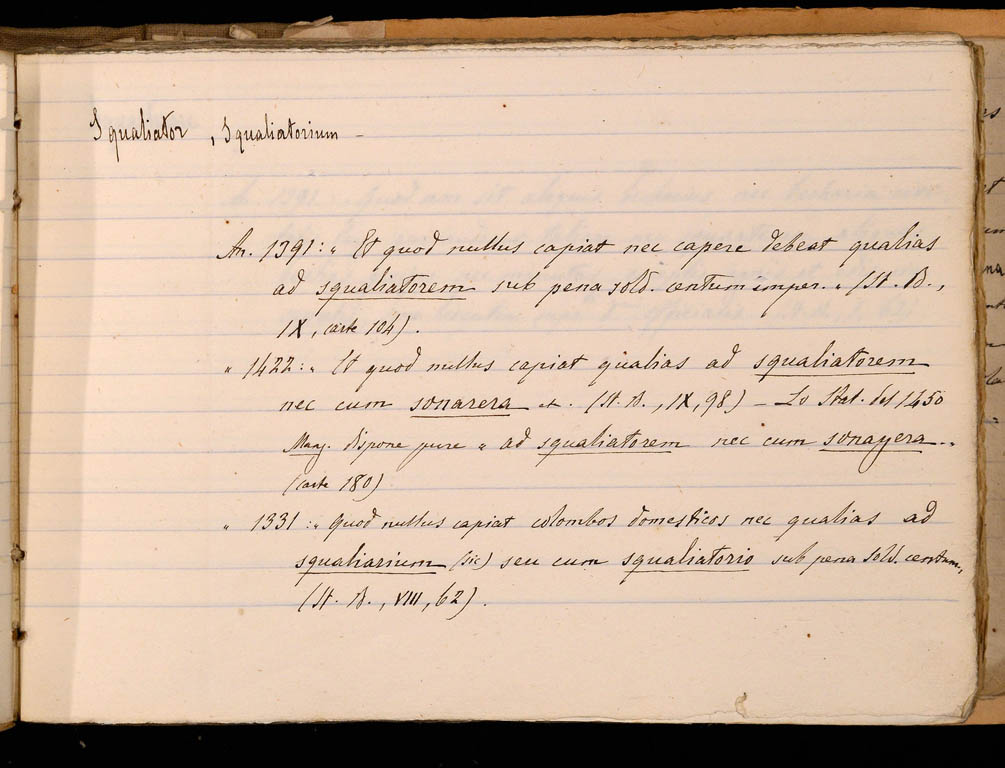 Squaliator, Squaliatorium -
An. 1391: „ Et quod nullus capiat nec capere debeat qualias
ad squaliatorem sub pena sold. centum imper. „ (St. B.,
IX, carte 104).
„ 1422: „ Et quod nullus capiat qualias ad squaliatorem
nec cum sonarera et. (St. B., IX, 98.) – Lo Stat. del 1450
Mang. dispone pure „ ad squaliatorem nec cum sonayera. „
(carte 180)
„ 1331: „ Quod nullus capiat colombos domesticos nec qualias ad
squaliarium (sic) seu cum squaliatorio sub pena sold. centum.,
(St. B., VIII, 62).